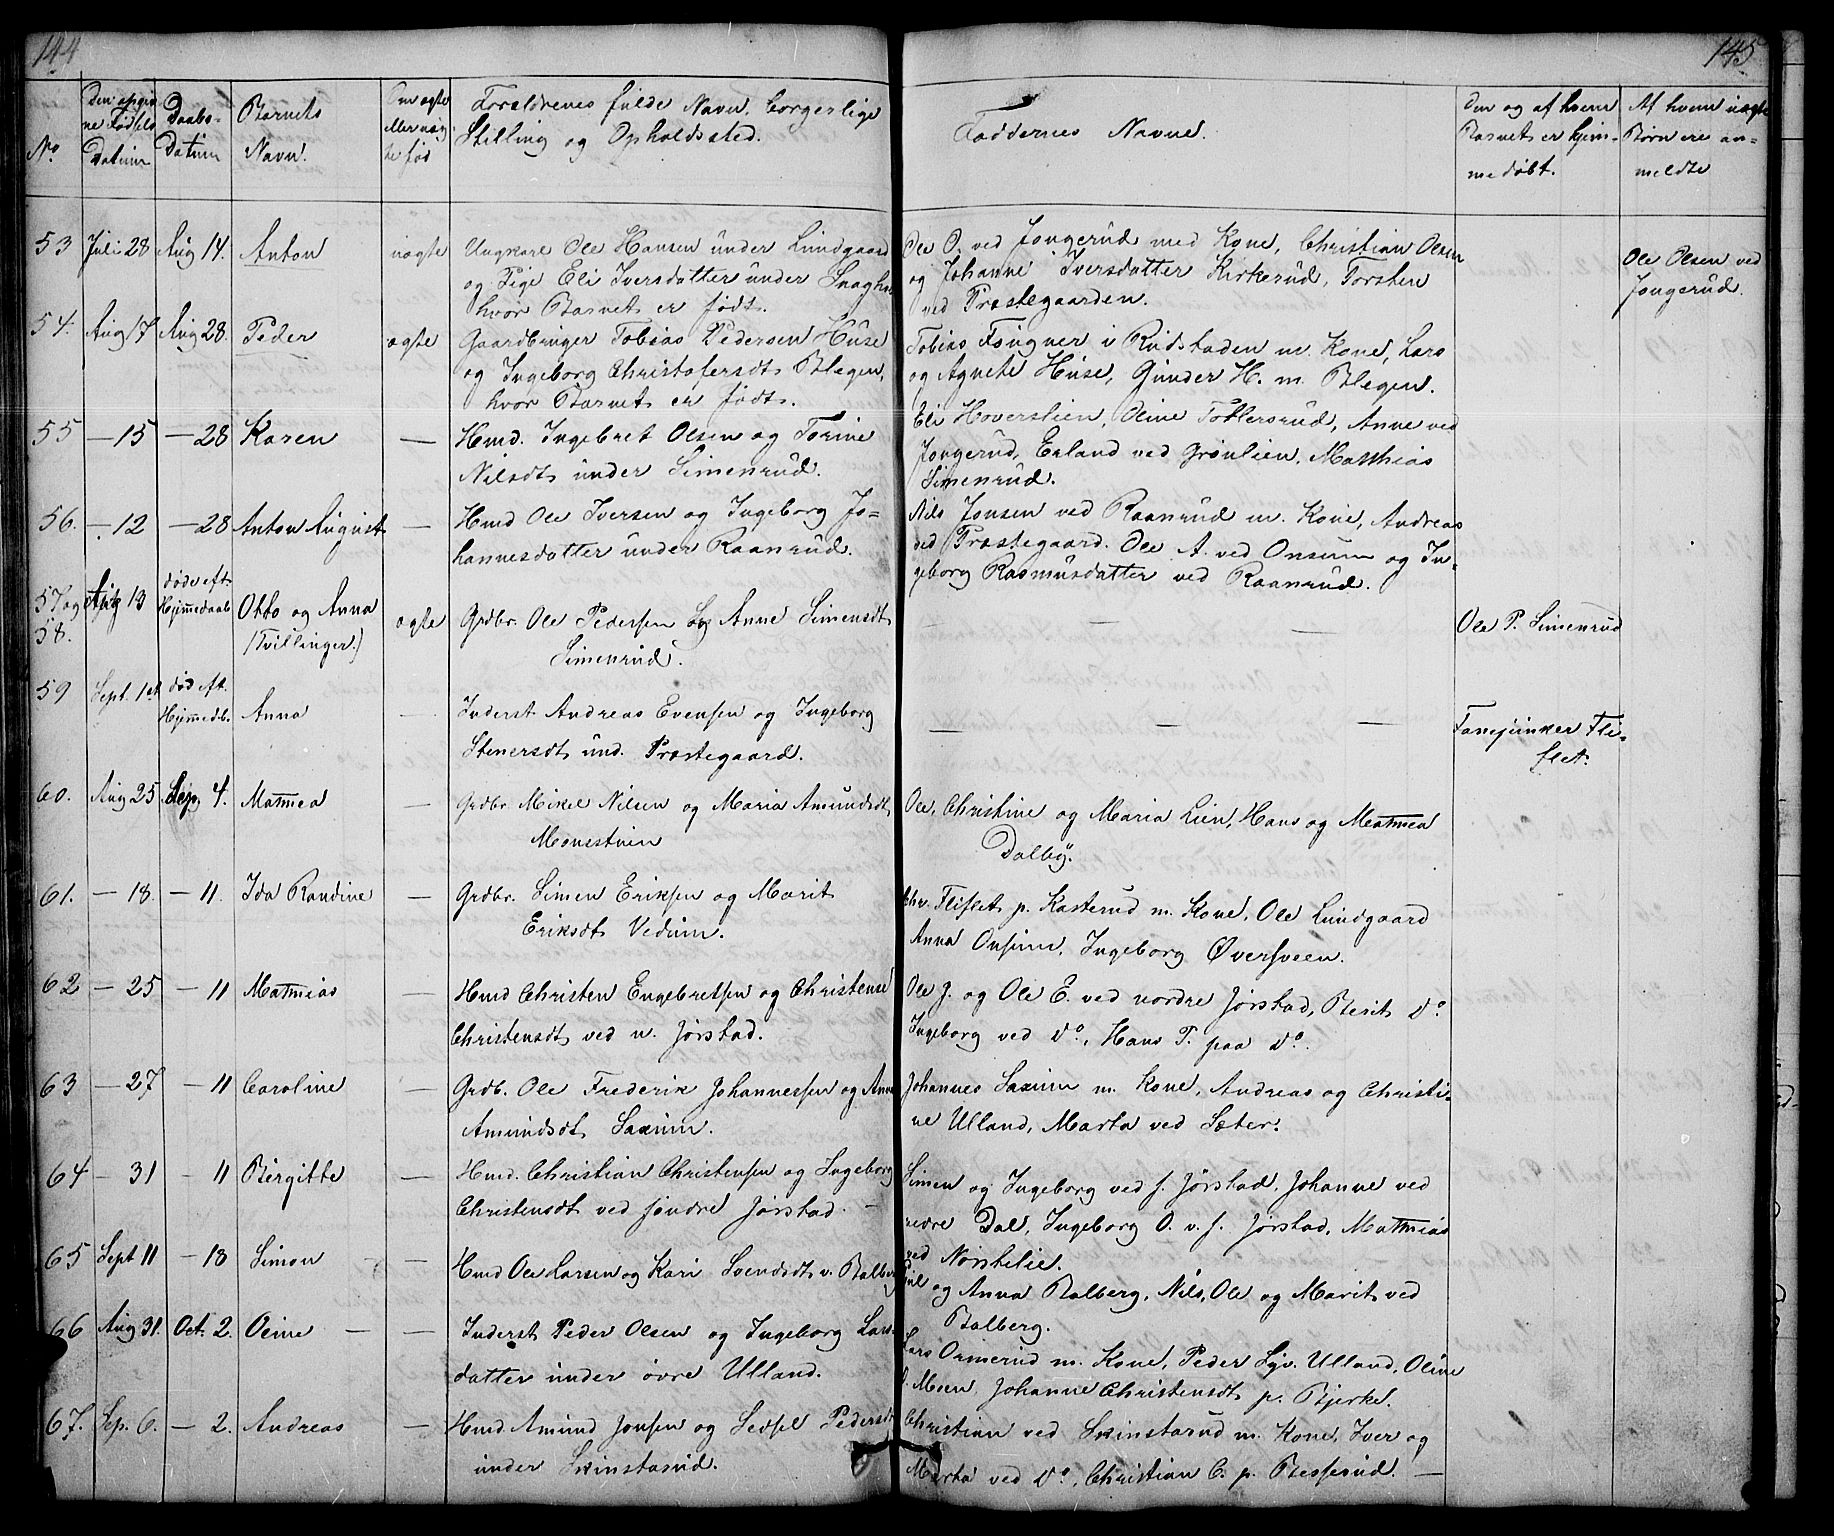 144
No.
Den opgiv
ne Fødsels
Datum
Daabs-
Datum
Barnets
Navn.
Om ægte
eller uæg
te fød
Forældrenes fulde Navn, borgerlige
Stilling og Opholdssted.
53 Juli 28 Aug 14. Anton uægte Ungkarl Ole Hansen under Lundgaard
og Pige Eli Iversdatter under
hvor Barnet er født.
54. Aug 17 Aug 28. Peder ægte Gaardbruger Tobias Pedersen Huse
og Ingeborg Christofersdt. Blegen,
hvor Barnet er født.
55 — 15 — 28 Karen — Hmd. Ingebret Olsen og Torine
Nilsdt. under Simenrud.
56. — 12 — 28 Anton August — Hmd Ole Iversen og Ingeborg Jo-
hannesdatter under Raanrud.
57 og 58. 13 døde eft. Hjemmedaab Otto og Anna (Tvillinger.) ægte Grdbr. Ole Pedersen og Anne Simensdt.
Simenrud.
59 Sept. 1st død eft. Hjemmedb. Anna — Inderst Andreas Evensen og Ingeborg
Stenersdt. und. Præstegaard.
60. Aug 25 Sep 4. Mathea — Grdbr Mikel Nilsen og Maria Amundsdt.
61. — 18. — 11. Ida Randine — Grdbr. Simen Eriksen og Marit
Eriksdt. Vedum.
62 — 25 — 11 Mathias — Hmd Christen Engebretsen og Christense
Christensdt. ved n. Jørstad.
63 — 27 — 11 Caroline — Grdb. Ole Frederik Johannessen og Anne
Amundsdt. Saxum.
64 — 31 — 11 Birgitte — Hmd. Christian Christensen og Ingeborg
Christensdt. ved søndre Jørstad. —
65 Sept 11 — 18 Simon — Hmd Ole Larsen og Kari Svendsdt. v. Balberg
66 Aug 31. Oct. 2. Oline — — Inderst Peder Olsen og Ingeborg Lars-
datter under øvre Ulland.
67. Sep. 6. — 2. Andreas — Hmd Amund Jonsen og Sedsel Pedersdt.
under Skinstarud.
145
Faddernes Navne.
Den og af hvem
Barnet er hjem-
medøbt.
Af hvem uægte
Børn ere an-
meldte
Ole O. ved Jongerud med Kone, Christian Olsen
og Johanne Iversdatter Kirkerud, Torsten
ved Præstegaarden.
Ole Olsen ved
Jongerud.
Tobias Fougner i Rudstaden m. Kone, Lars
og Agnete Huse, Gunder H. m. Blegen.
Eli Hoverslien, Oline Toklersrud, Anne ved
Jongerud, Erland ved Grønlien, Matthias
Simenrud.
Nils Jonsen ved Raanrud m. Kone, Andreas
ved Præstegaard. Ole A. ved Onsum og In-
geborg Rasmusdatter ved Raanrud.
— — — Ole P. Simenrud
— — — Fanejunker Fli-
flet.
Ole, Christine og Maria Lien, Hans og Mathea
Dalby.
Chr. Fliflet p. Kasterud m. Kone, Ole Lundgaard
Anna Onsum, Ingeborg Øversveen.
Ole J. og Ole E. ved nordre Jørstad, Berit Do.
Ingeborg ved Do., Hans T. paa Do.
Johannes Saxum m. Kone, Andreas og Christi-
ne Ulland, Marta ved Sæter.
Simen og Ingeborg ved s. Jørstad, Johanne ved
nedre Dal, Ingeborg O. v. s. Jørstad, Mathias
ved Nørstelie.
og Anna Balberg, Nils, Ole og Marit ved
Balberg.
Lars Ormerud m. Kone, Peder Syv. Ulland, Oline
Moen, Johanne Christensdt. p. Bjerke.
Christian ved Skinstarud m. Kone, Iver og
Marta ved Do., Christian C. p. Besserud. —